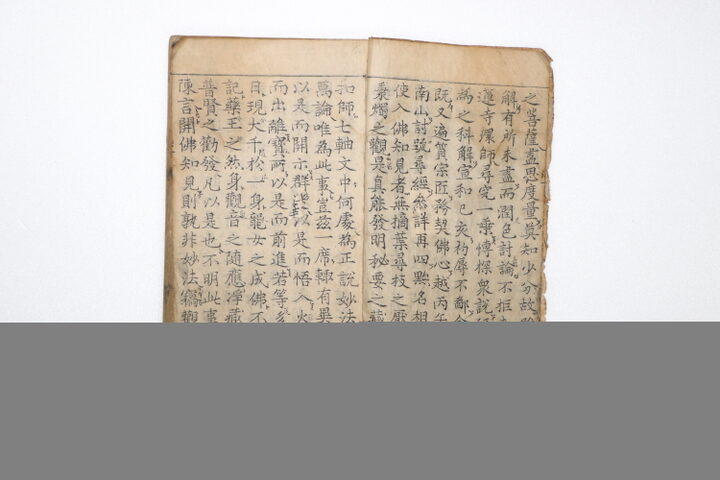 之菩薩盡思度量莫知少分故
解有所未盡而潤色討論不拒
蓮寺環師尋究一乘愽探衆說
為之科解宣和己亥初辱不鄙
既又遍質宗匠務契佛心越丙午
南山討號尋經叅詳再四㸃名相
使入佛知見者無摘葉尋枝之
爇燭之觀是真能發明秘要之藏
扣師七軸文中何處為正說妙法
萬論唯為此事豈茲一席輙有異
以是而開示群生以是而悟入火
而出離寶所以是而前進若等
日現大千於一身龍女之成佛不
記藥王之然身觀音之隨應淨藏
普賢之勸發凡以是也不明此事
陳言開佛知見則孰非妙法竊觀